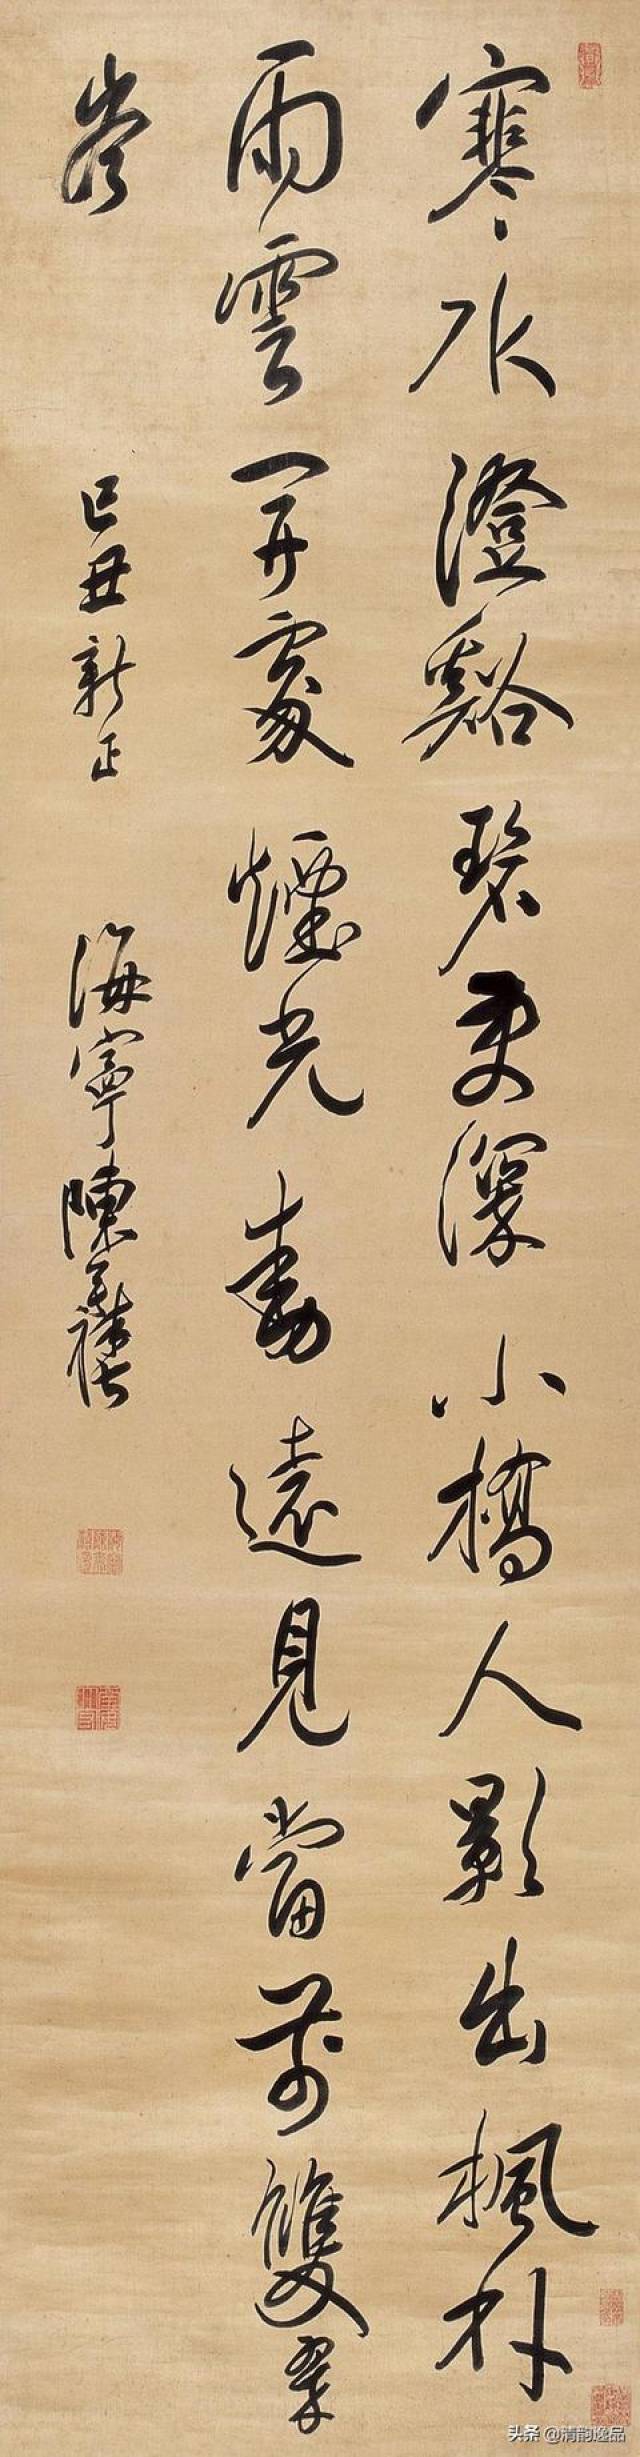 寒水澄谿碧更深小橋人影出楓林
雨雲開處煙光動遠見當前雙翠
岑 己丑新正 海寧陳奕禧
头条 @清韵逸品